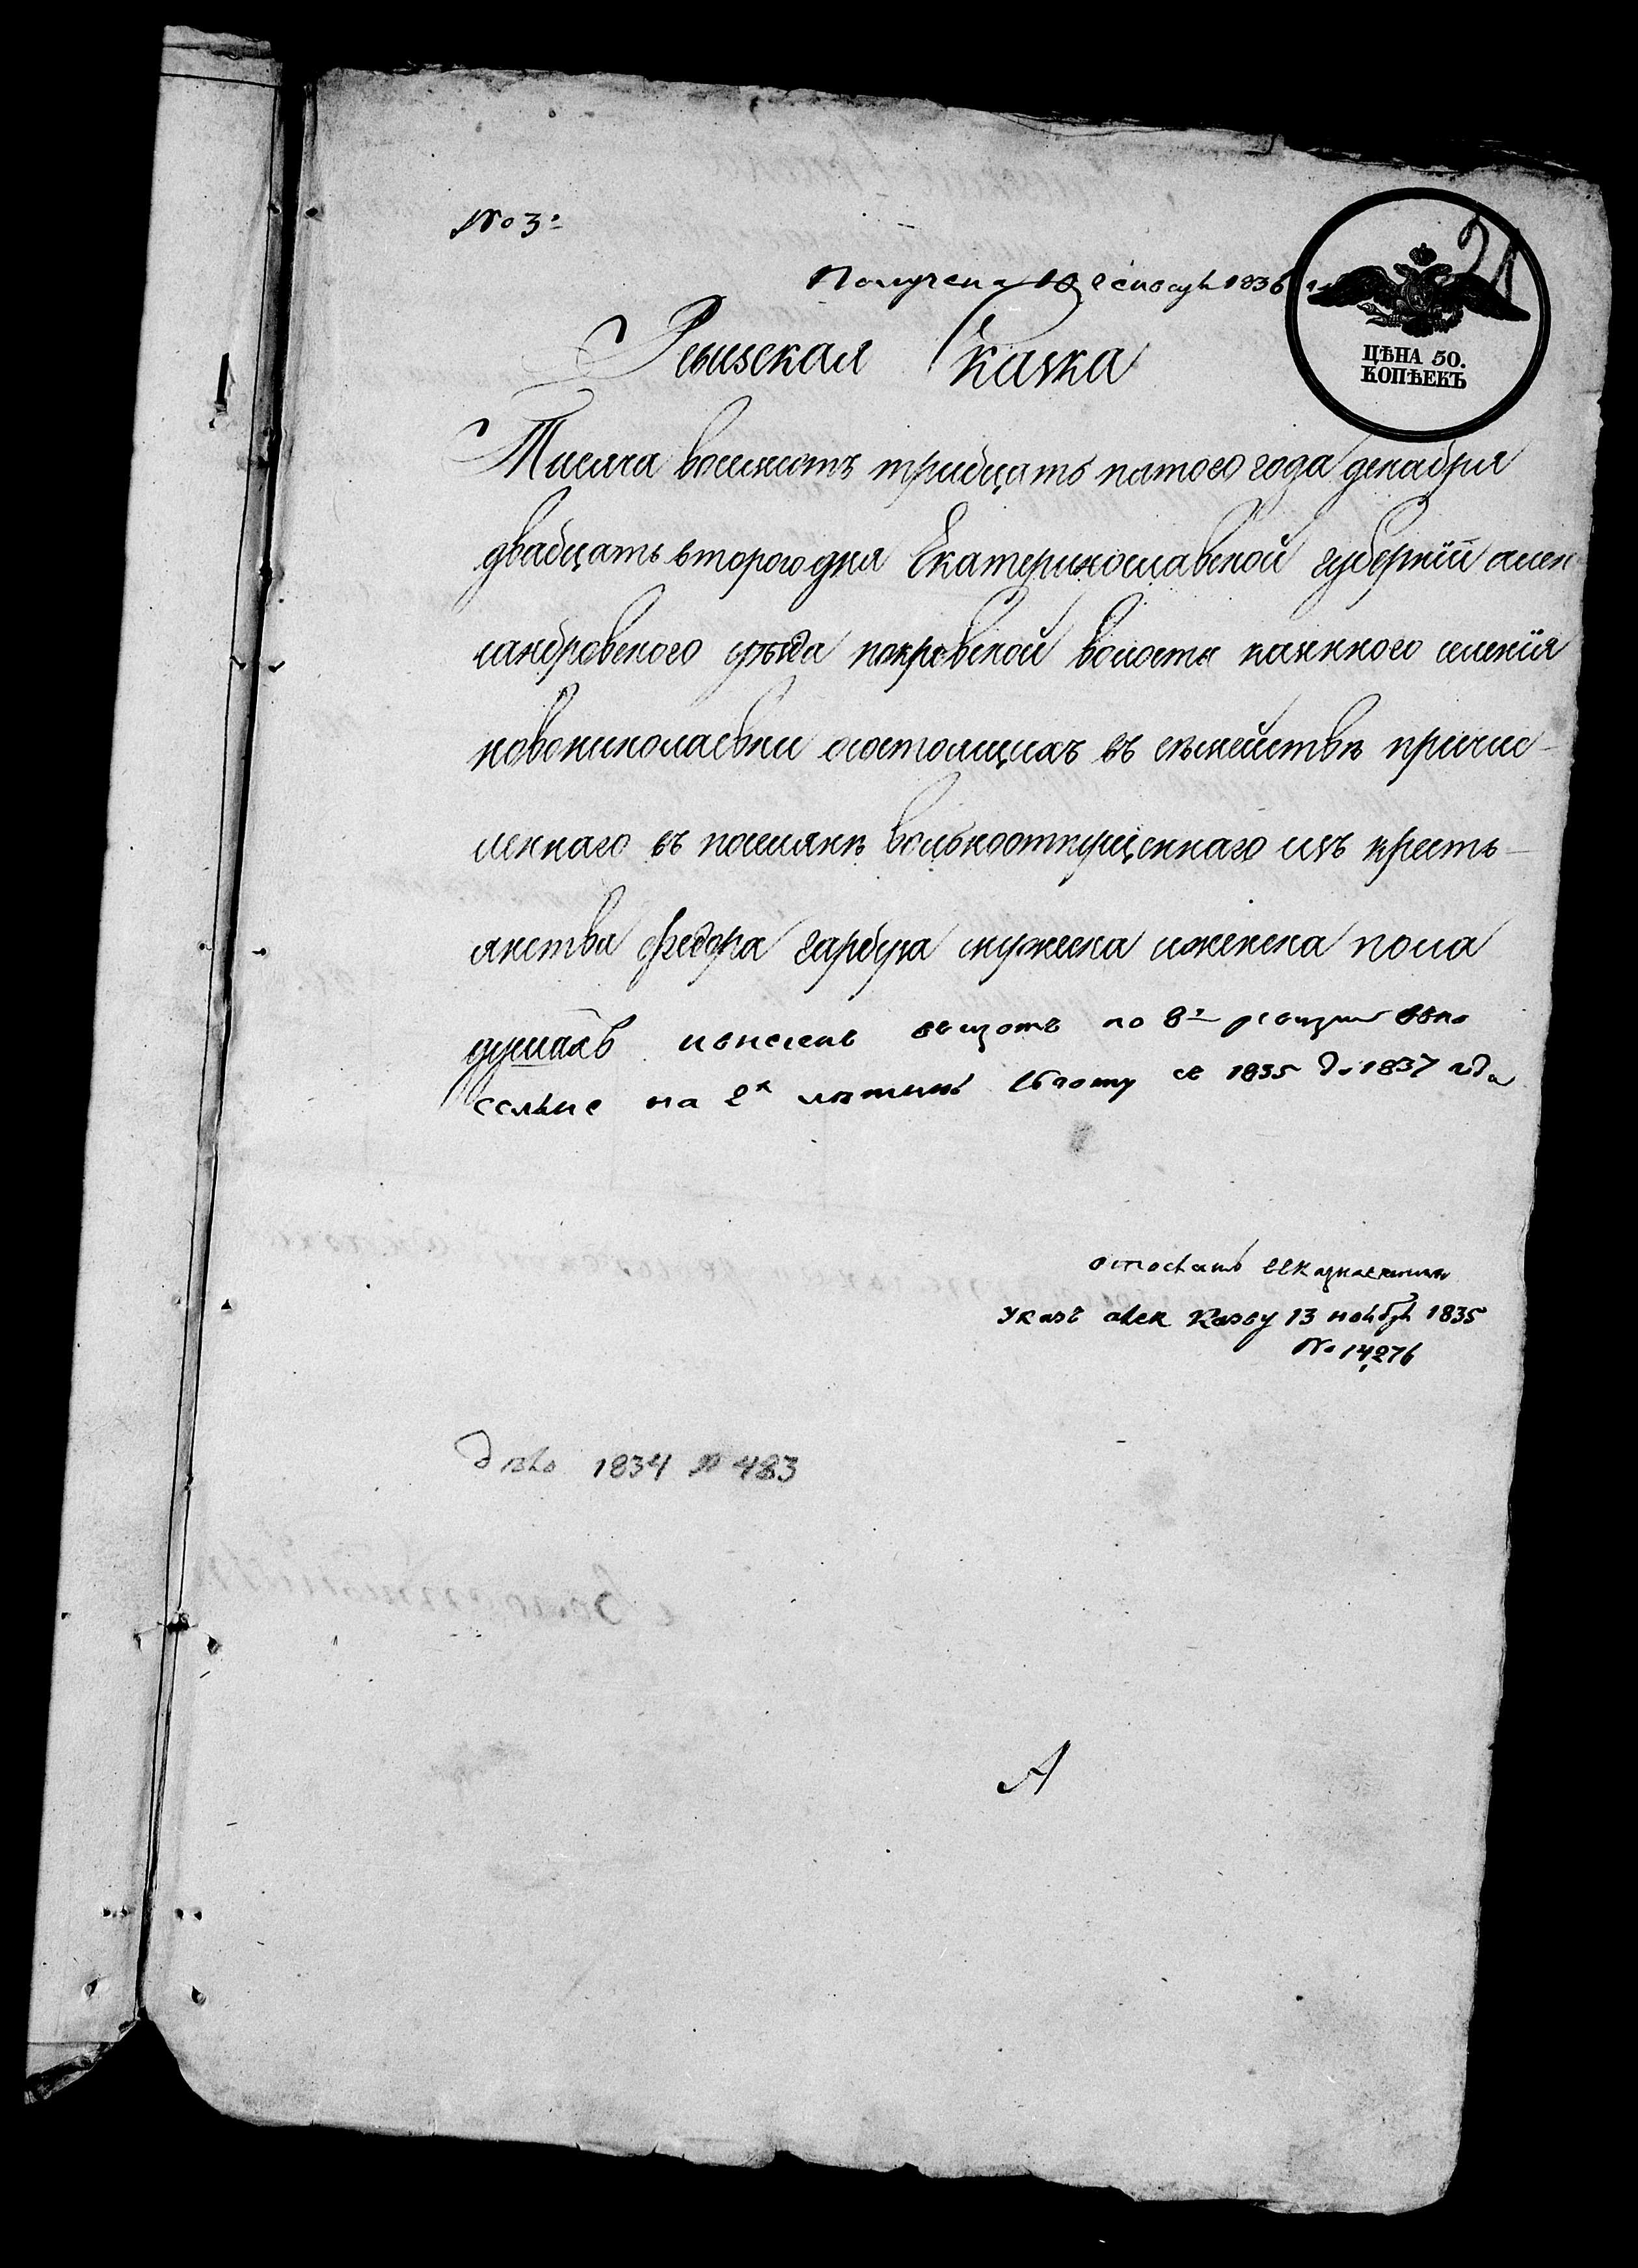 № 3:
21
Получена 10 генваря 1836 го
ЦѢНА 50.
КОПѢЕКЪ
Ревизская Скаска
Тысяча восемьсотъ тридцать пятого года декабря
двадцать второго дня Екатеринославской губернїи алек
сандровского уѣзда покровской волости казенного селенїя
новониколаевки состоящихъ въ семействѣ причис-
леннаго въ поселяне вольноотпущеннаго изъ кресть-
янства Федора гарбуза мужеска иженска пола
душахъ по 8й ревизіи
на 2х лѣтнюю льготу съ 1835 до 1837 года
Указъ 13 ноября 1835
№ 14276
дѣло 1834 № 483
А